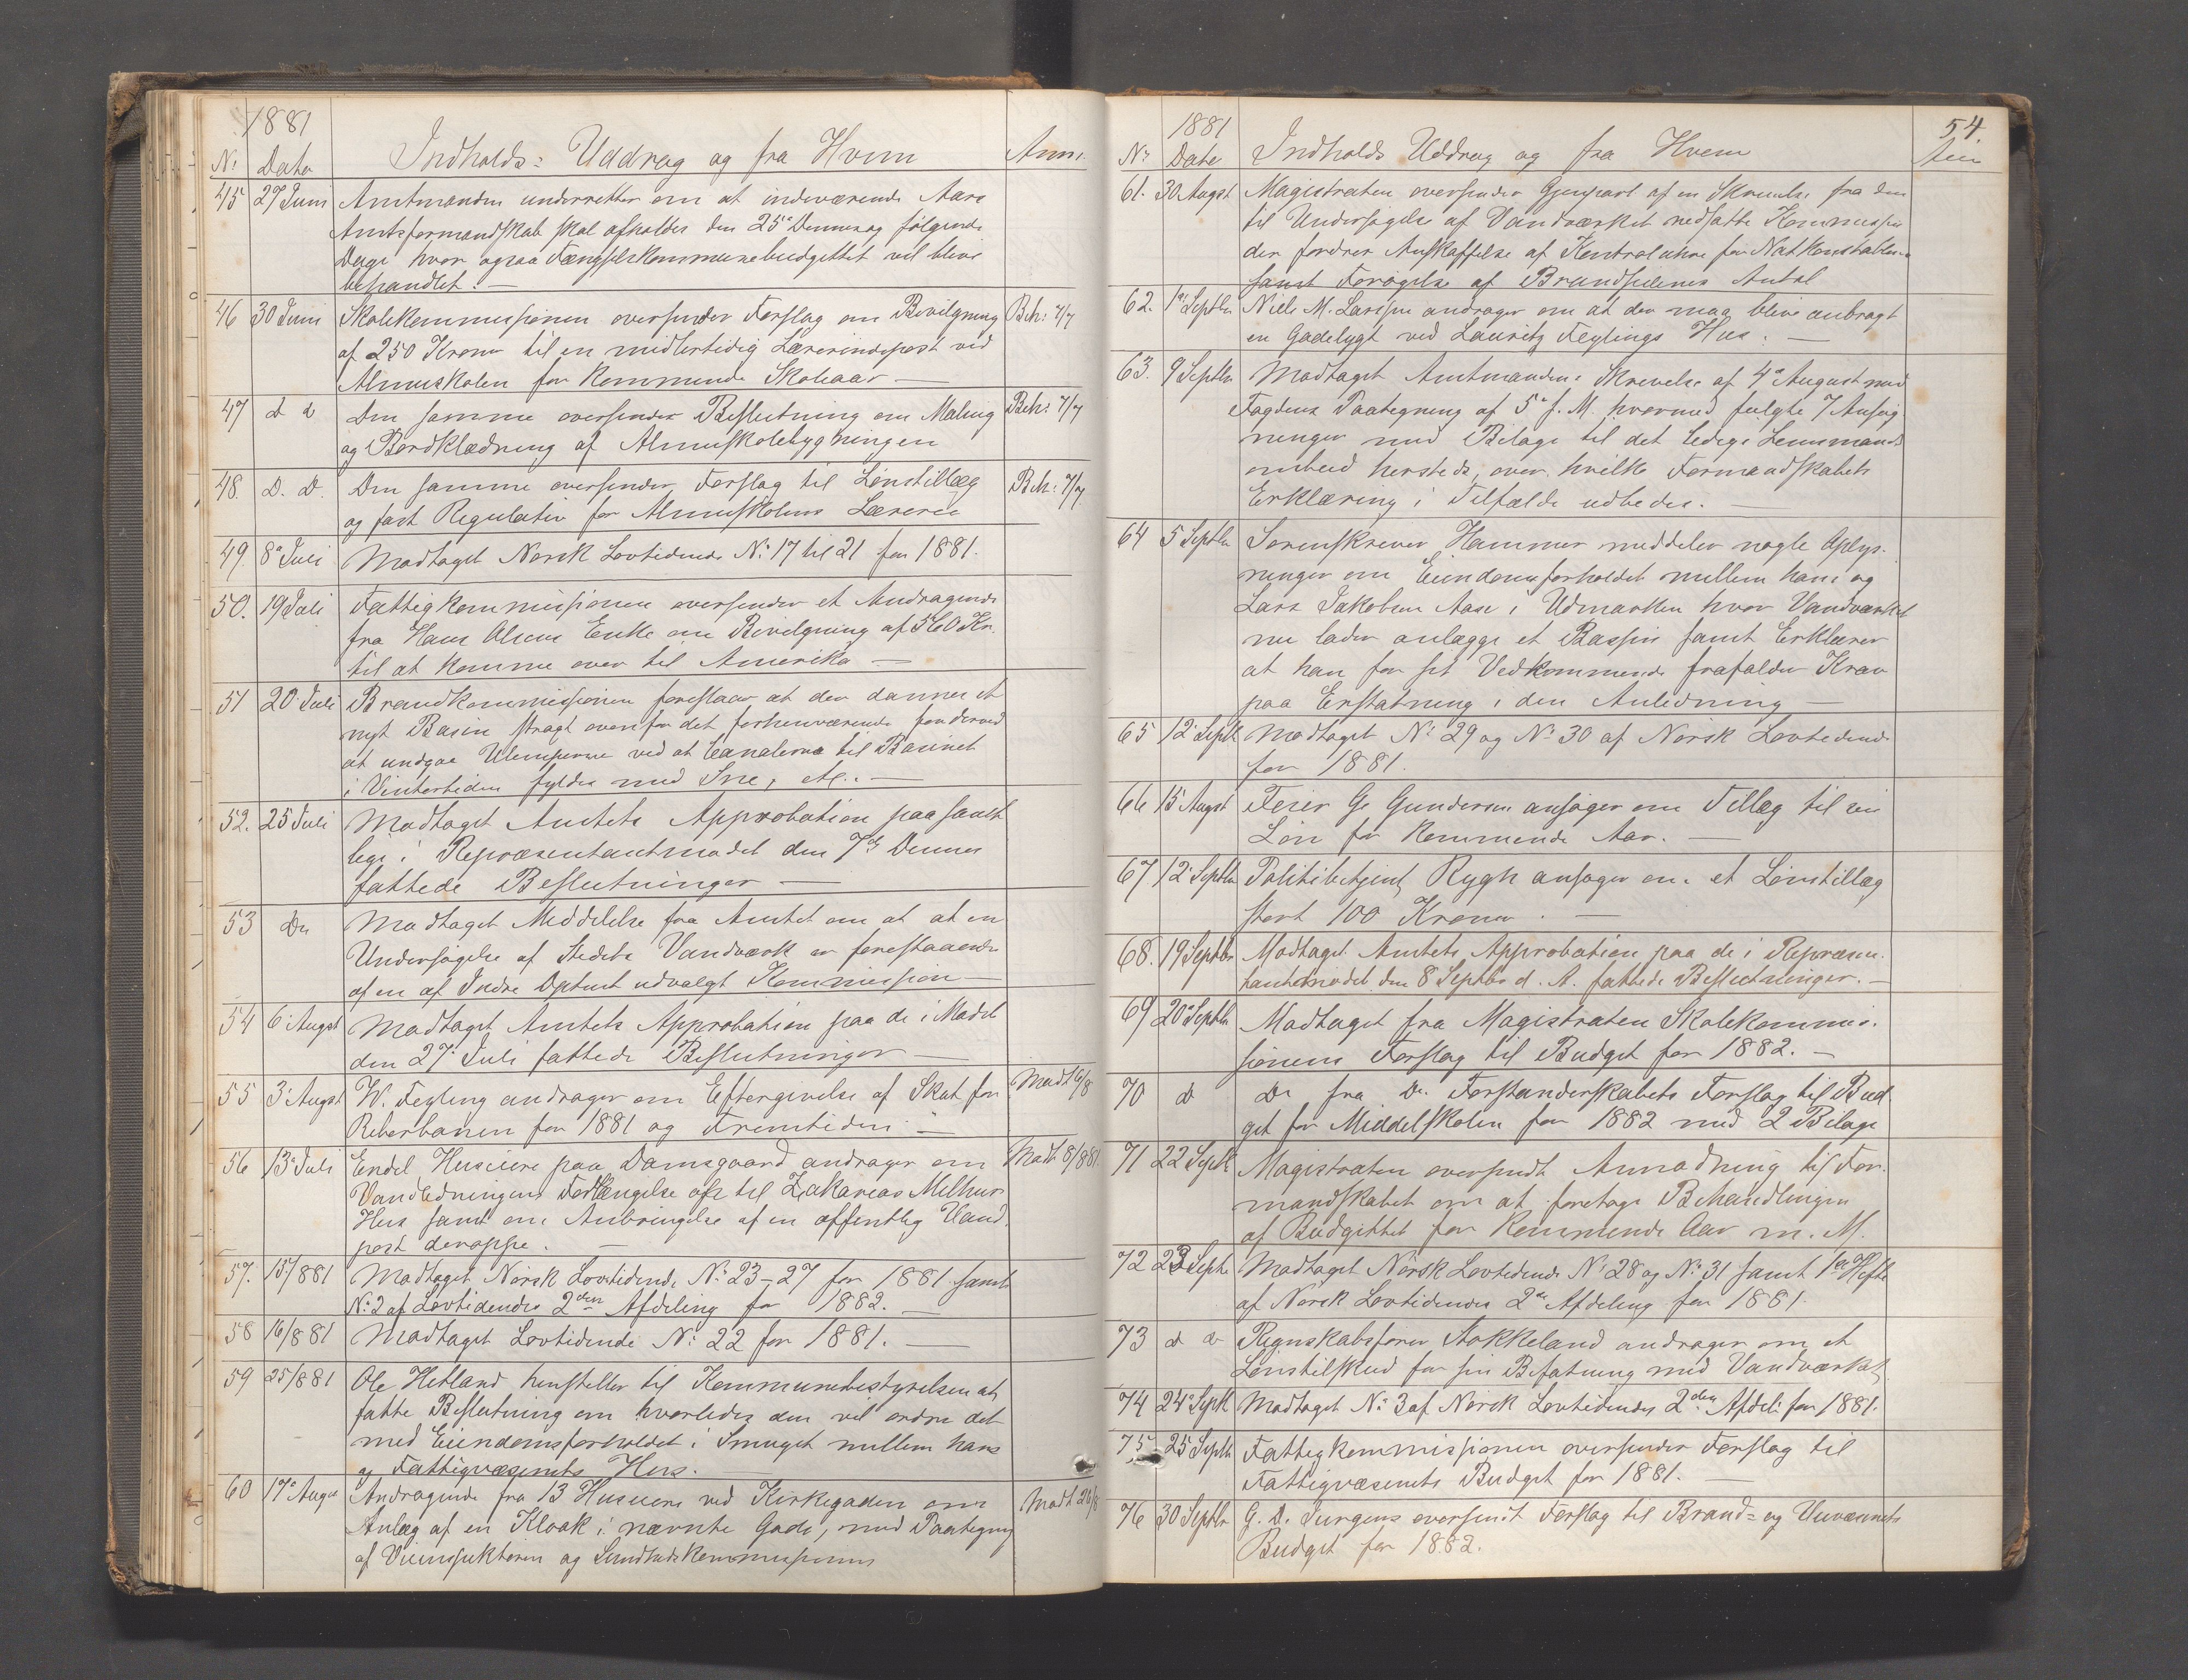 1881
No Dato Indholds- Uddrag og fra Hvem Anm.
45 27 Juni Amtmanden underretter om at indeværende Aars
Amtsformandskab skal afholdes den 25de Dennes og følgende
Dage hvor ogsaa Fængselskommunebudgettet vil blive
behandlet. —
46 30 Juni Skolekommissionen oversender Forslag om Bevilgning Beh: 7/7
af 250 Kroner til en midlertidig Lærerindepost ved
Almuskolen for kommende Skoleaar —
47 D d Den samme oversender Beslutning om Maling Beh: 7/7
og Bordklædning af Almuskolebygningen
48. D. D. Den samme oversender Forslag til Lønstillæg Beh: 7/7
og fast Regulativ for Almuskolens Lærere
49. 8de Juli Modtaget Norsk Lovtidende No 17 til 21 for 1881.
50. 19 Juli Fattigkommissionen oversender et Andragende
fra Hans Olsens Enke om Bevilgning af 560 Kr.
til at komme over til Amerika —
51 20 Juli Brandkommissionen foreslaar at der dannes et
nyt Basin stragt ovenfor det forhenværende for derved
at undgaa Ulemperne ved at Canalerne til Basinet
i Vintertiden fyldes med Sne, etc. —
52. 25 Juli Modtaget Amtets Approbation paa samt
lige i Repræsentantmødet den 7de Dennes
fattede Beslutninger —
53 Do Modtaget Meddelelse fra Amtet om at at en
Undersøgelse af Stedets Vandværk er forestaaende
af en af Indre Deptmt udvalgt Kommission —
54 6 Augst Modtaget Amtets Approbation paa de i Mødet
den 27 Juli fattede Beslutninger —
55 3 Augst W. Feyling andrager om Eftergivelse af Skat for Modt 6/8
Reberbanen for 1881 og Fremtiden —
56 13 Juli Endel Huseiere paa Damsgaard andrager om Modt 8/8 81.
Vandledningens Forlængelse op til Zakarias Melhus
Hus samt om Anbringelse af en offentlig Vand
post deroppe. —
57. 15/8 81 Modtaget Norsk Lovtidende No 23-27 for 1881 samt
No 2 af Lovtidendes 2den Afdeling for 1882. —
58 16/8 81 Modtaget Lovtidende No 22 for 1881. —
59 25/8 81 Ole Hetland henstiller til Kommunebestyrelsen at
fatte Beslutning om hvorledes den vil ordne det
med Eiendomsforholdet i Smuget mellem hans
og Fattigvæsenets Hus. —
60 17 Augst Andragende fra 13 Huseiere ved Kirkegaden om Modt 26/8
Anlæg af en Kloak i nævnte Gade, med Paategning
af Veiinspektøren og Sundhedskommissionen
54.
1881
No Dato Indholds Uddrag og fra Hvem Anm
61. 30 Augst Magistraten oversender Gjenpart af en Skrivelse fra den
til Undersøgelse af Vandværket nedsatte Kommission
der fordrer Anskaffelse af Kontroluhre for Natkonstablerne
samt Forøgelse af Brandhulenes Antal
62. 1ste Septbr Niels M. Larsen andrager om at der maa blive anbragt
en Gadelygt ved Lauritz Feylings Hus. —
63. 9 Septbr Modtaget Amtmandens Skrivelse af 4de August med
Fogdens Paategning af 5te f. M. hvormed fulgte 7 Ansøg
ninger med Bilage til det ledige Lensmands
ombud hersteds, over hvilke Formandskabets
Erklæring i Tilfælde udbedes. —
64 5 Septbr Sorenskriver Hammer meddeler nogle Oplys-
ninger om Eiendomsforholdet mellem ham og
Lars Jakobsen Aase i Udmarken hvor Vandværket
nu lader anlægge et Bassin samt Erklærer
at han for sit Vedkommende frafalder Krav
paa Erstatning i den Anledning —
65 12 Septb Modtaget No 29 og No 30 af Norsk Lovtidende
for 1881.
66 15 Augst Feier G. Gundersen ansøger om Tillæg til sin
Løn for kommende Aar. —
67 12 Septbr Politibetjent Rygh ansøger om et Lønstillæg
stort 100 Kroner. —
68. 19 Septbr Modtaget Amtets Approbation paa de i Repræsen-
tantmødet den 8 Septbr d. A. fattede Beslutninger. —
69 20 Septbr Modtaget fra Magistraten Skolekommis-
sionens Forslag til Budget for 1882. —
70 d Do fra Do Forstanderskabets Forslag til Bud
get for Middelskolen for 1882 med 2 Bilage
71 22 Septb Magistraten oversendt Anmodning til For-
mandskabet om at foretage Behandlingen
af Budgettet for kommende Aar m. M.
72 23 Septb Modtaget Norsk Lovtidende No 28 og No 31 samt 1ste Hefte
af Norsk Lovtidendes 2den Afdeling for 1881.
73 d d Regnskabsfører Stokkeland andrager om et
Lønstilskud for sin Befatning med Vandværket
74 24 Septb Modtaget No 3 af Norsk Lovtidendes 2den Afdeli for 1881.
75 25 Septb Fattigkommissionen oversender Forslag til
Fattigvæsenets Budget for 1881. —
76 30 Septbr G. D. Jurgens oversendt Forslag til Brand- og Veivæsenets
Budget for 1882.